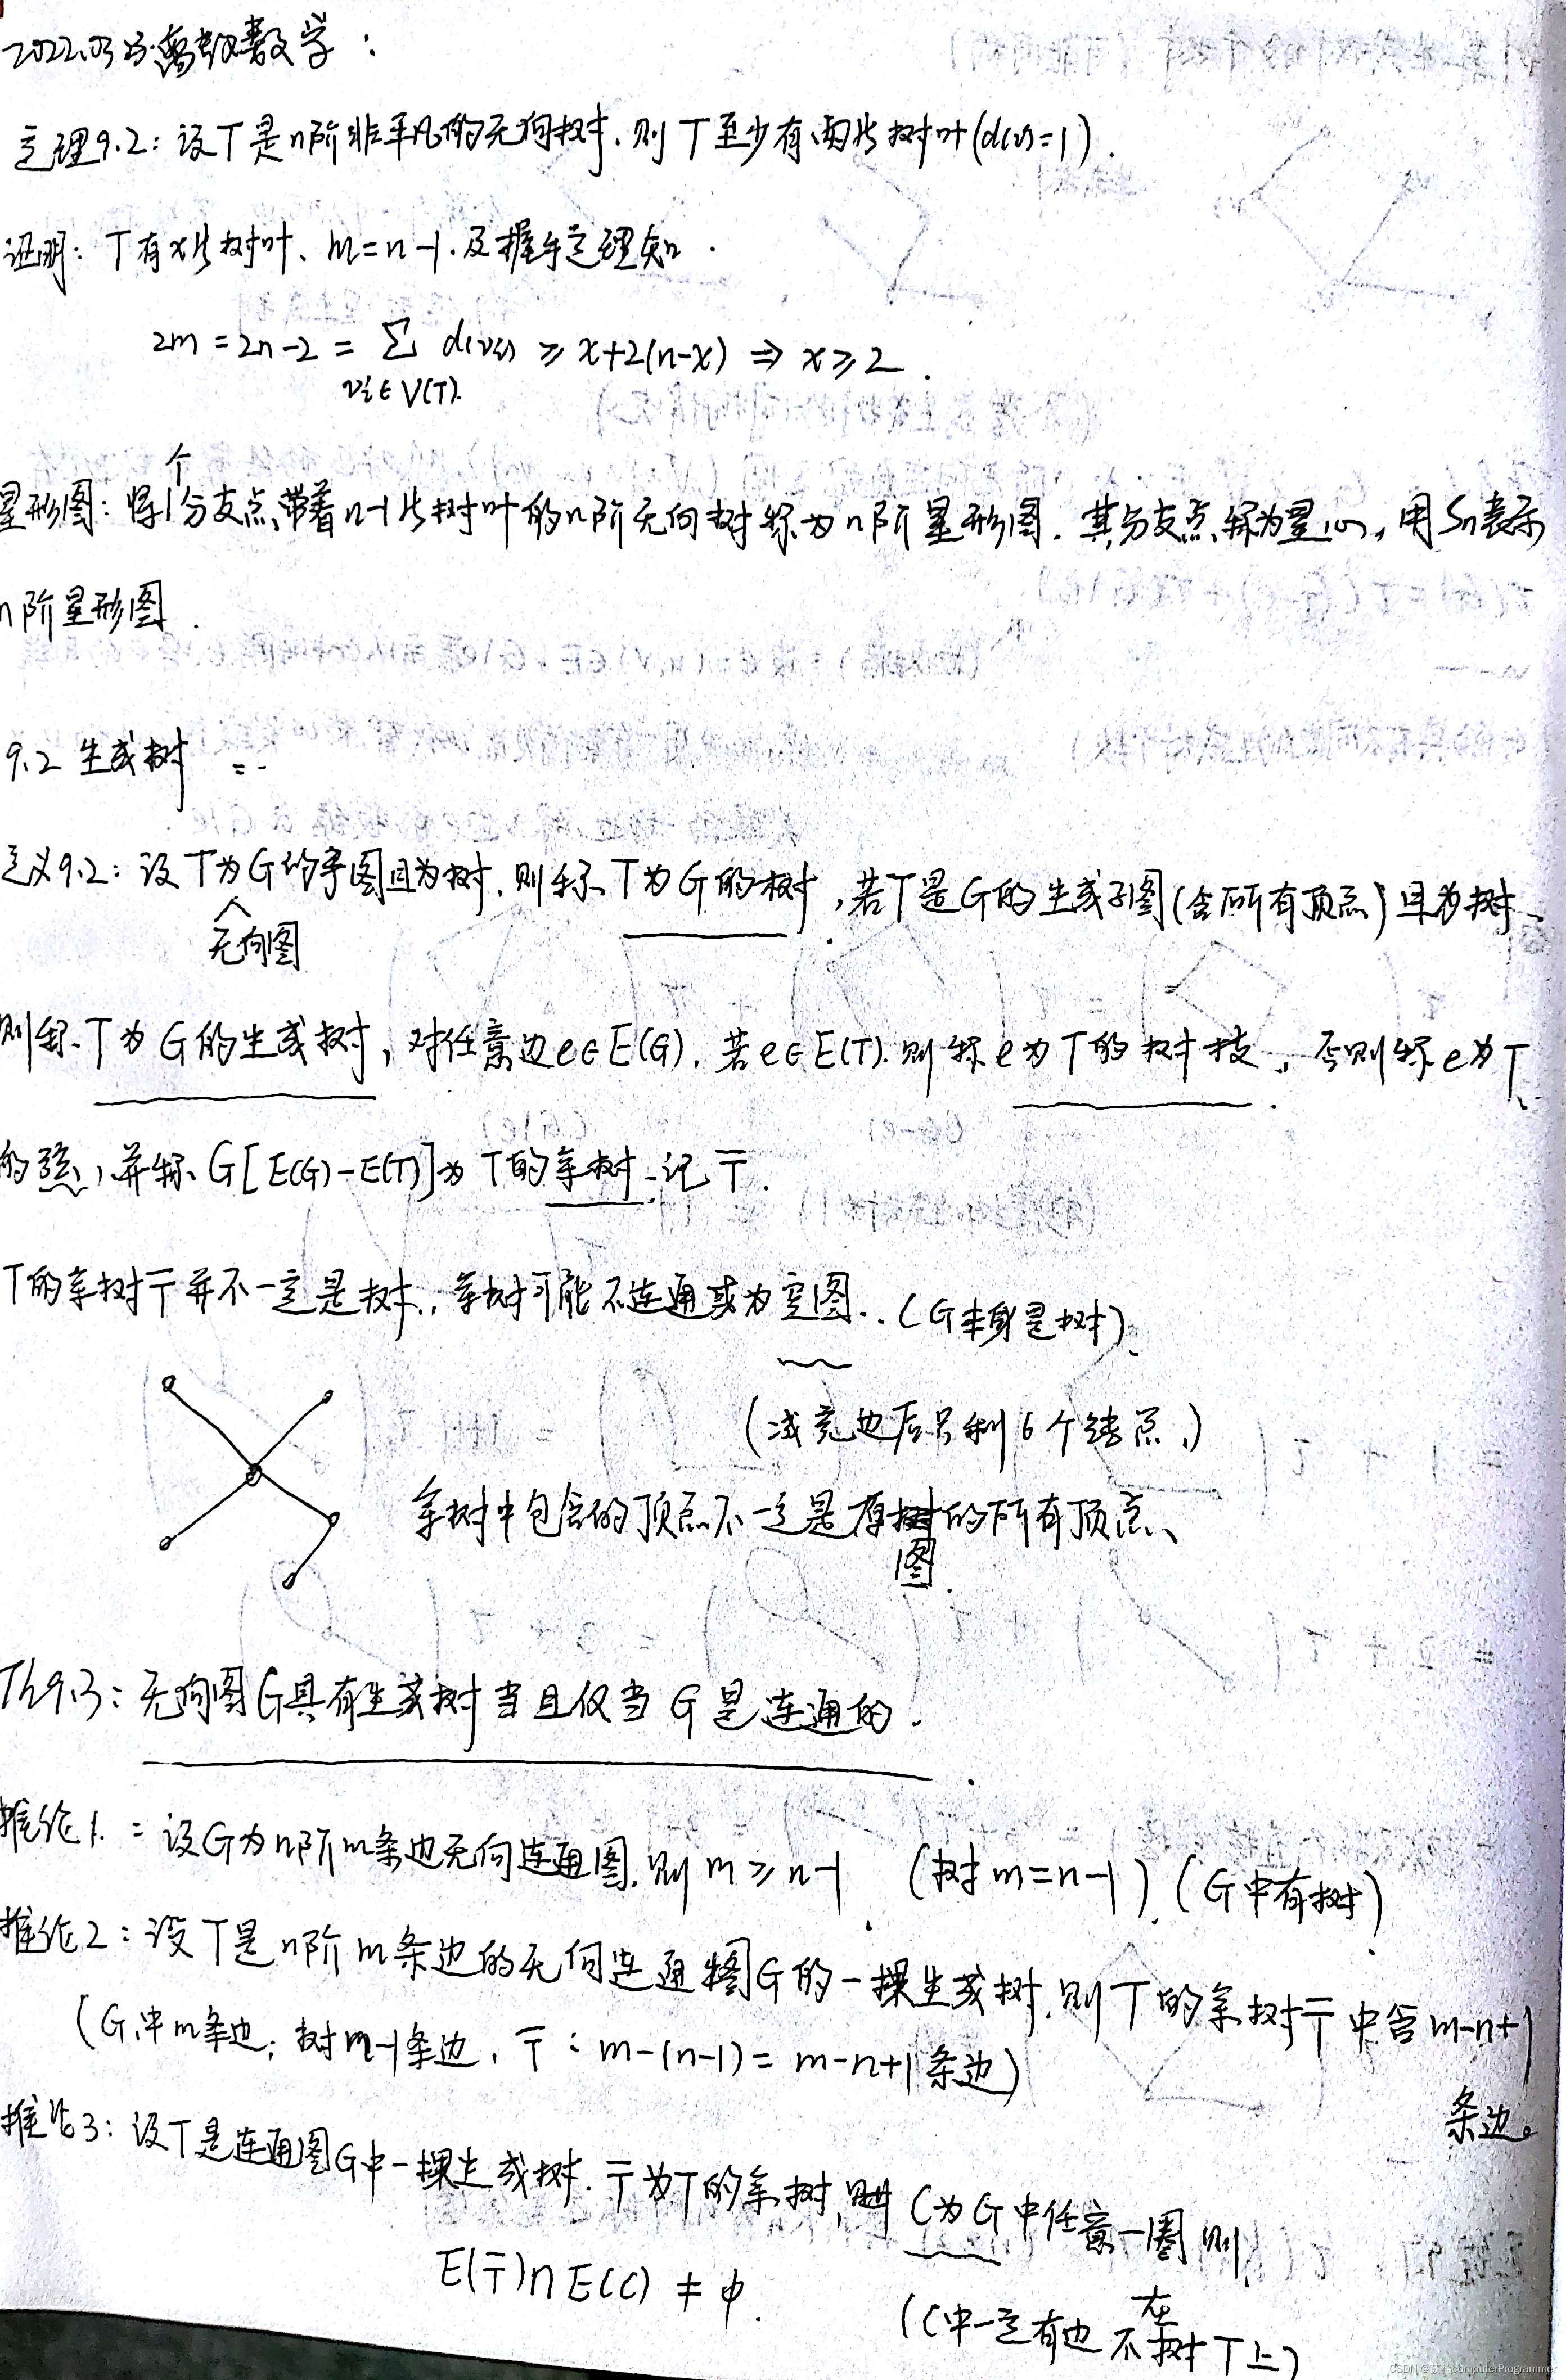 离散数学：
定理9.2：设T是n阶非平凡的无向树，则T至少有两片树叶(d(v)=1).
证明：T有x片树叶、m=n-1.及握手定理知.
2m = 2n-2 = ∑ d(vi) ⩾ x+2(n-x) ⇒ x⩾2.
vi∈V(T).
个
星形图：将1分支点、带着n-1片树叶的n阶无向树称为n阶星形图. 其分支点称为星心，用Sn表示
n阶星形图.
9.2 生成树
定义9.2：设T为G的子图且为树，则称T为G的树，若T是G的生成子图(含所有顶点)且为树
无向图
则称T为G的生成树，对任意边e∈E(G)，若e∈E(T).则称e为T的树枝，否则称e为T
的弦，并称G[E(G)-E(T)]为T的余树.记T̅.
T的余树T̅并不一定是树.，余树可能不连通或为空图..(G本身是树).
(减完边后只剩6个结点.)
余树中包含的顶点不一定是原树的所有顶点、
图.
Th9.3：无向图G具有生成树当且仅当G是连通的.
推论1：设G为n阶m条边无向连通图.则m⩾n-1. (树m=n-1).(G中有树)
推论2：设T是n阶m条边的无向连通图G的一棵生成树.则T的余树T̅中含m-n+1
条边。
(G中m条边；树n-1条边，T̅：m-(n-1)=m-n+1条边)
推论3：设T是连通图G中一棵生成树.T̅为T的余树,C为G中任意一圈则
E(T̅)∩E(C) ≠ ϕ.
在
(C中一定有边不树T上)